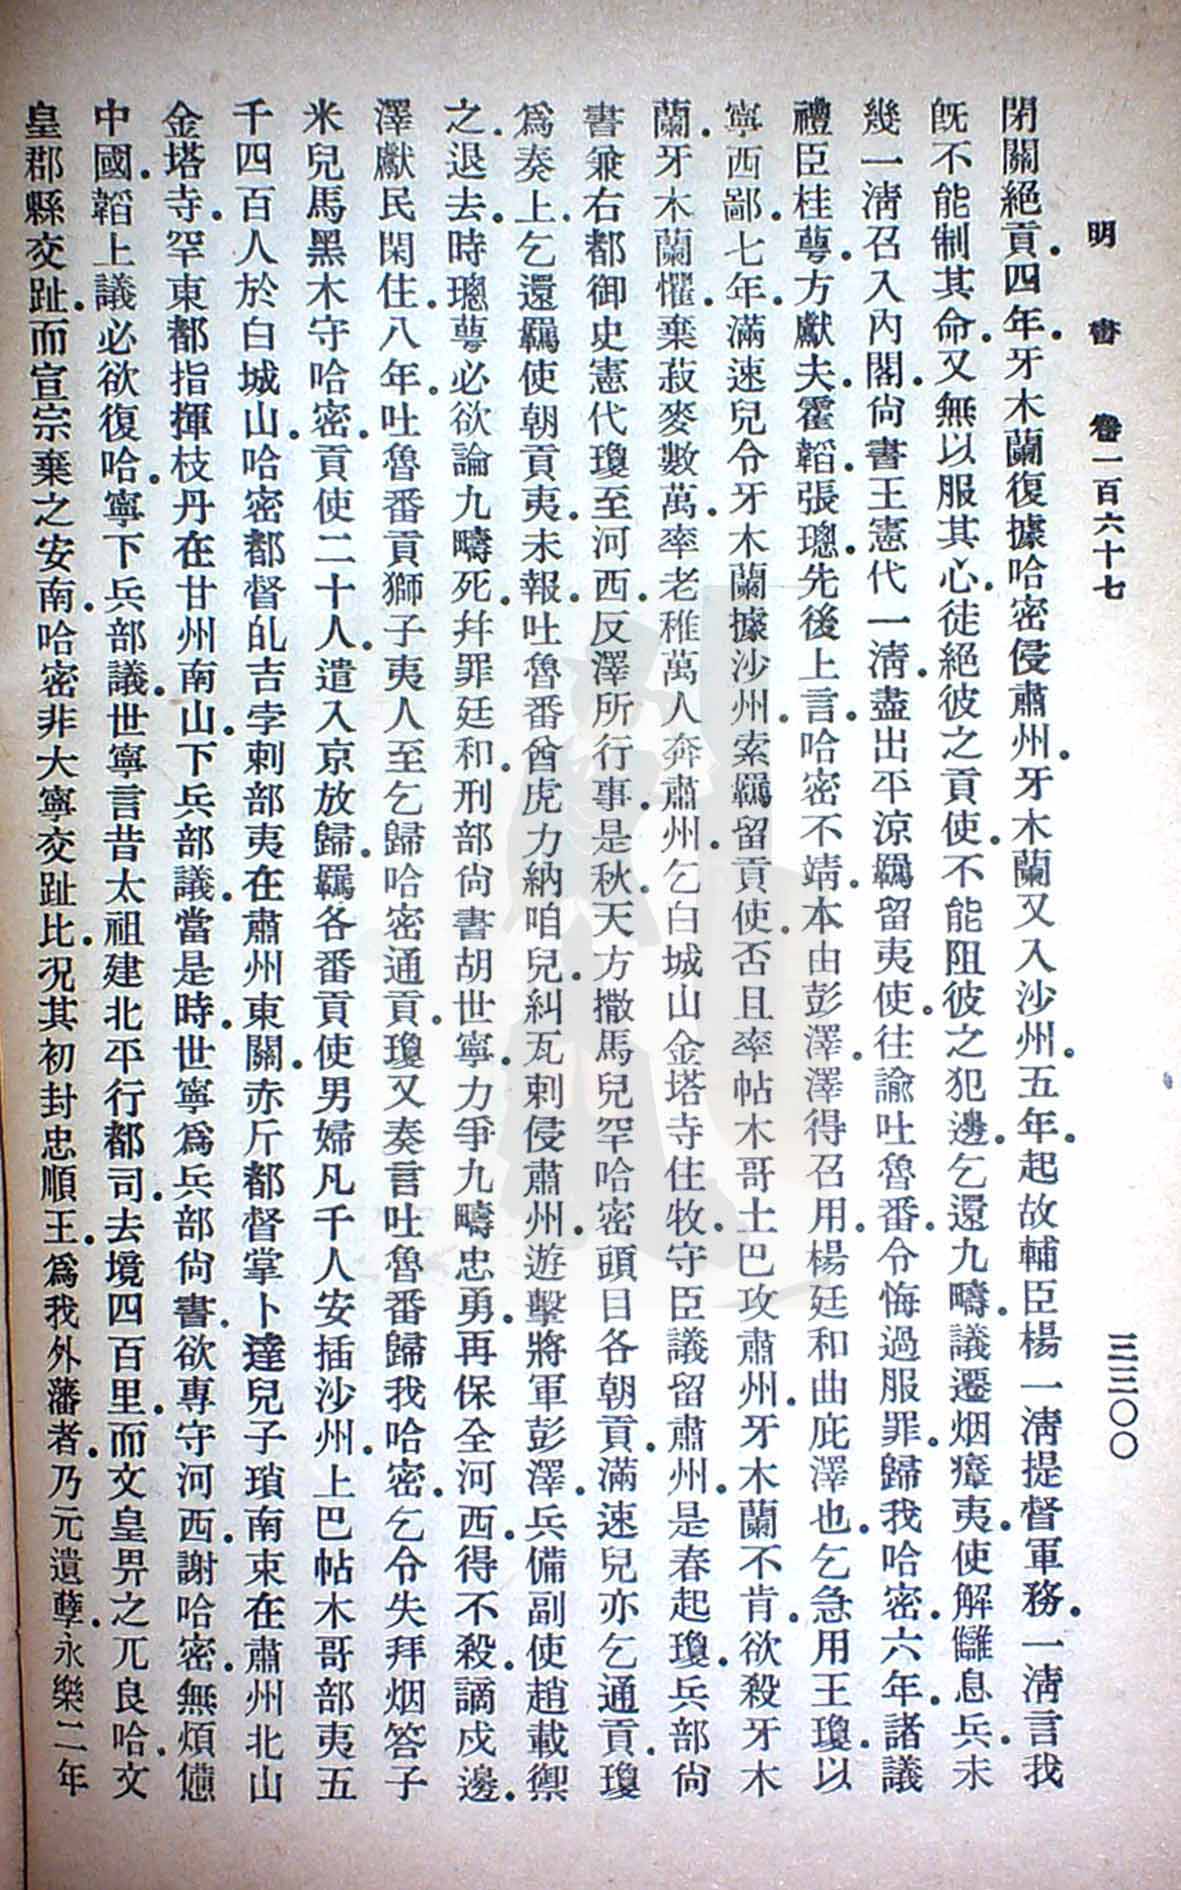 明書　卷一百六十七　三三〇〇
閉關絕貢．四年．牙木蘭復據哈密侵肅州．牙木蘭又入沙州．五年．起故輔臣楊一淸提督軍務．一淸言我
旣不能制其命．又無以服其心．徒絕彼之貢使．不能阻彼之犯邊．乞還九疇．議遷烟瘴夷．使解讎息兵．未
幾一淸召入內閣．尙書王憲代一淸．盡出平涼羈留夷使．往諭吐魯番．令悔過服罪．歸我哈密．六年．諸議
禮臣桂萼．方獻夫．霍韜．張璁．先後上言．哈密不靖．本由彭澤．澤得召用．楊廷和曲庇澤也．乞急用王瓊．以
寧西鄙．七年．滿速兒令牙木蘭據沙州．索羈留貢使．否且率帖木哥土巴攻肅州．牙木蘭不肯．欲殺牙木
蘭．牙木蘭懼．棄菽麥數萬．率老稚萬人奔肅州．乞白城山金塔寺住牧．守臣議留肅州．是春起瓊．兵部尙
書兼右都御史憲代瓊．至河西．反澤所行事．是秋．天方撒馬兒罕哈密頭目各朝貢．滿速兒亦乞通貢．瓊
爲奏上．乞還羈使朝貢夷．未報．吐魯番酋虎力納咱兒．糾瓦剌侵肅州．遊擊將軍彭濬．兵備副使趙載禦
之．退去．時璁萼必欲論九疇死．幷罪廷和．刑部尙書胡世寧．力爭九疇忠勇．再保全河西．得不殺．謫戍邊．
澤獻民閑住．八年．吐魯番貢獅子夷人至．乞歸哈密通貢．瓊又奏言．吐魯番歸我哈密．乞令失拜烟答子
米兒馬黑木守哈密．貢使二十人．遣入京放歸．羈各番貢使男婦凡千人安插沙州．土巴帖木哥部夷五
千四百人於白城山．哈密都督乩吉孛剌部夷在肅州東關．赤斤都督掌卜達兒子瑣南束在肅州北山
金塔寺．罕東都指揮枝丹在甘州南山．下兵部議．當是時．世寧爲兵部尙書．欲專守河西．謝哈密．無煩憊
中國．韜上議必欲復哈．寧下兵部議．世寧言昔太祖建北平行都司．去境四百里．而文皇畀之兀良哈．文
皇郡縣交趾．而宣宗棄之安南．哈密非大寧交趾比．況其初封忠順王．爲我外藩者．乃元遺孽．永樂二年